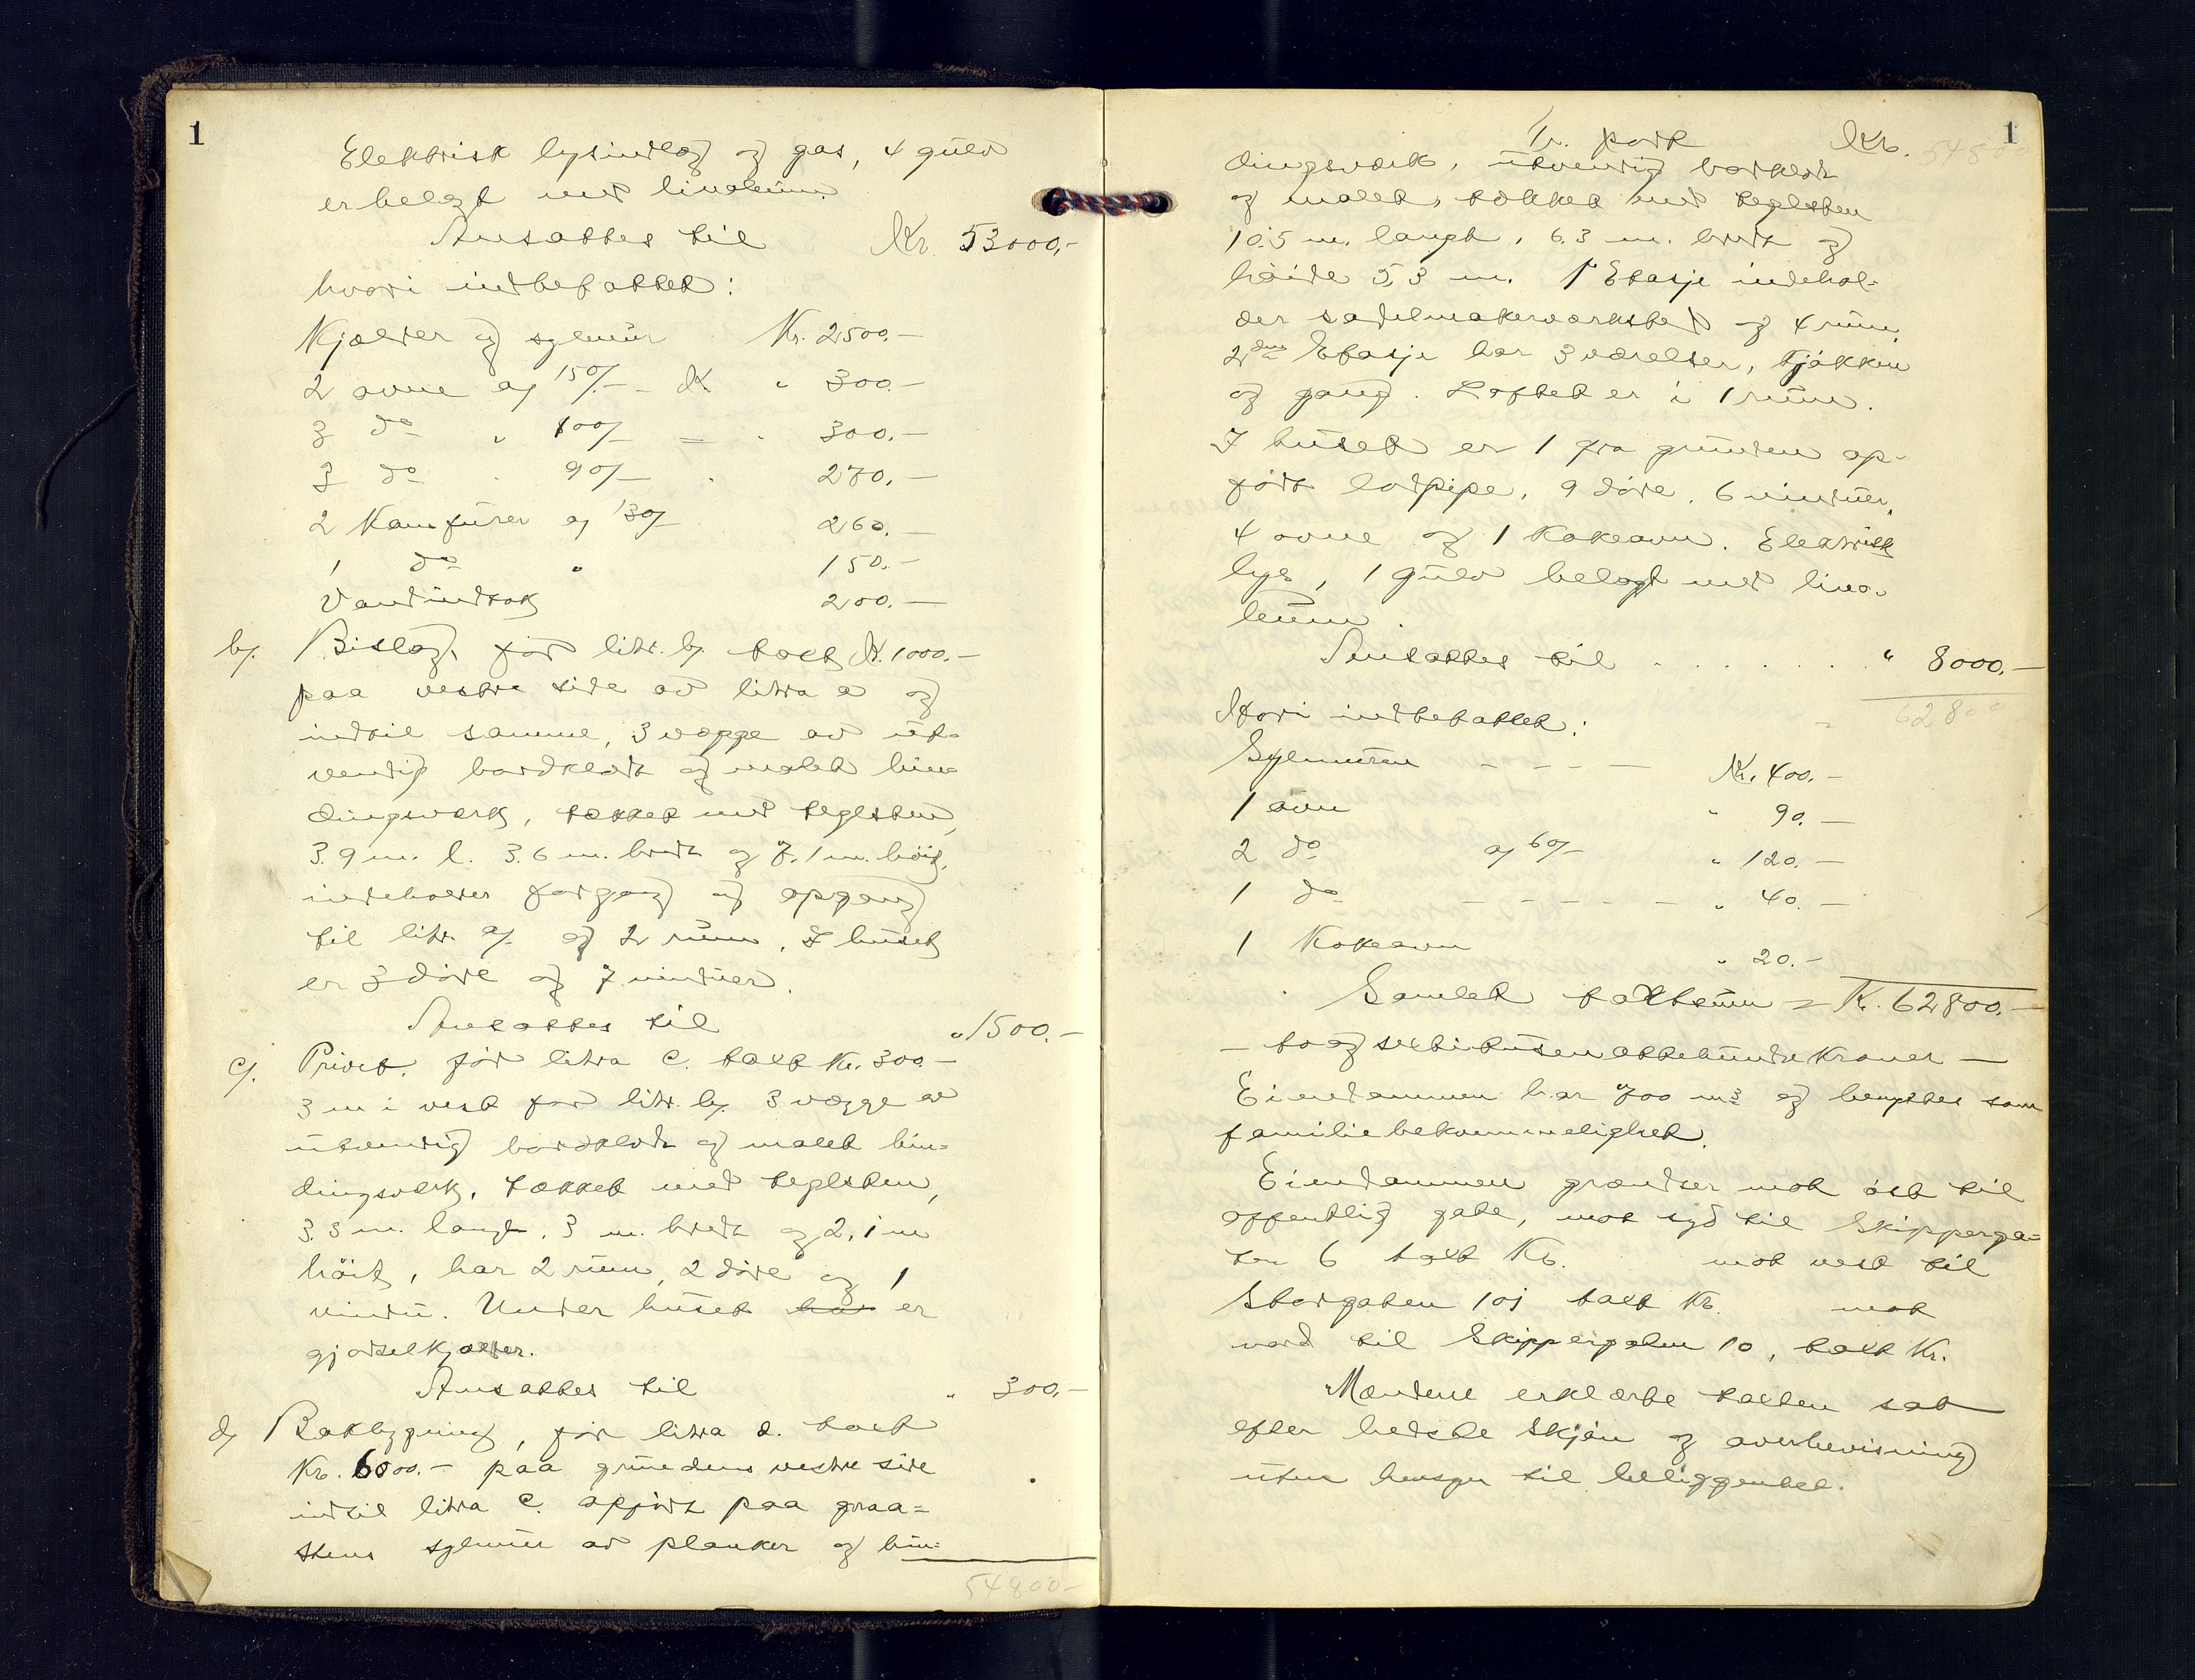 1
Elektrisk lysindlæg og gas, 4 gulv
er belagt med linoleum.
Ansattes til Kr. 53000,-
hvori indbefattet:
Kjælder og sylmur Kr. 2500.-
2 ovne a/ 150/- Kr. " 300.-
3 do " 100/- = " 300.-
3 do " 90/- " 270.-
2 Kamfurer a/ 130/- 260.-
1 do " 150.-
Vandindtag 200.-
b/. Bislag, før litr. b/. taxt Kr. 1000.-
paa vestre side av litra a og
indtil samme, 3 vægge av ut-
vendig bordklædt og malet bin-
dingsverk, tækket med teglsten,
3.9 m. l. 3.6 m. bredt og 7.1 m. høig,
indeholder forgang og opgang
til litr. a/. og 2 rum. I huset
er 3 døre og 7 vinduer.
Ansattes til " 1500.-
c/. Privet. før litra c. taxt Kr. 300.-
3 m i vest for litr. b/. 3 vægge av
utvendig bordklædt og malet bin-
dingsverk, tækket med teglsten,
3.3 m. langt, 3 m. bredt og 2,1 m
høit, har 2 rum, 2 døre og 1
vindu. Under huset har er
gjødselkjælder.
Ansattes til " 300.-
d/ Bakbygning, før litra d. taxt
Kr. 6000.- paa grundens vestre side
indtil litra c. opført paa graa-
stens sylmur av planker og bin-
54800-
1
Tr. port Kr. 54800
dingsverk, utvendig bordklædt
og malet, tækket med teglsten
10.5 m. langt, 6.3 m. bredt og
høide 5,3 m. 1ste Etasje indehol-
der sadelmakerverksted og 4 rum,
2den Etasje har 3 værelser, kjøkken
og gang. Loftet er i 1 rum.
I huset er 1 fra grunden op-
ført lodpipe, 9 døre, 6 vinduer,
4 ovne og 1 kokeovn. Elektrisk
lys, 1 gulv belagt med lino-
leum.
Ansattes til . . . . . . " 8000.-
62800
Hvori indbefattet:
Sylmuren - - - - Kr. 400.-
1 ovn " 90.-
2 do a/ 60/- " 120.-
1 do - - - - - " 40.-
1 Kokeovn " 20.-
Samlet taktsum = Kr. 62800.-
- to og sekstitusenottehundre Kroner -
Eiendommen har 700 m² og benyttes som
familiebekvemmelighet.
Eiendommen grændser mot øst til
offentlig gate, mot syd til Skipperga-
ten 6 taxt Kr. mot vest til
Storgaten 101 taxt Kr. mot
nord til Skippergaten 10, taxt Kr.
Mændene erklærte taxten sat
efter bedste skjøn og overbevisning
uten hensyn til beliggenhet.